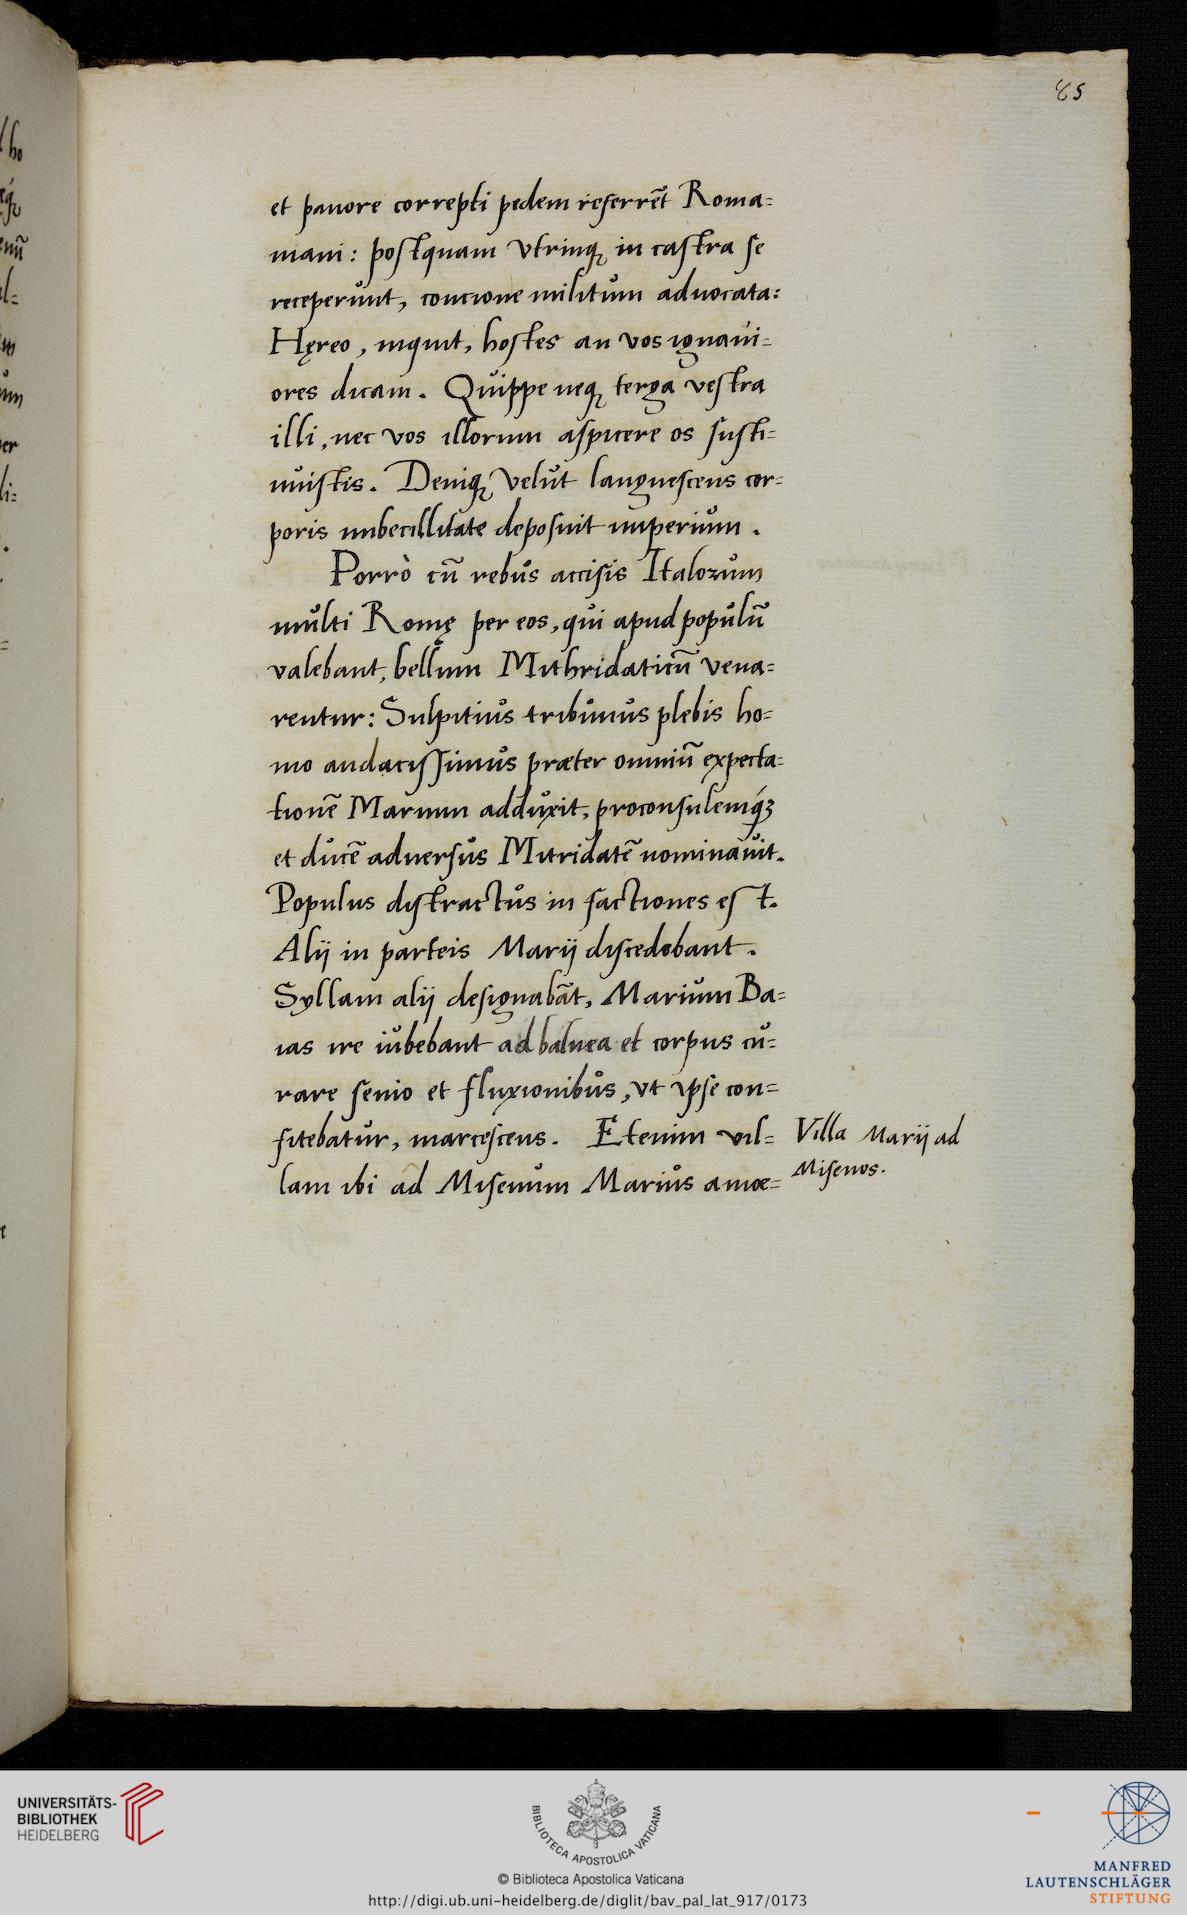 85
et pauore correpti pedem referrēt Roma=
mani: postquam vtrinq; in castra se
receperunt, concione militum aduocata:
Hęreo, inquit, hostes an vos ignaui=
ores dicam. Quippe neq; terga vestra
illi, nec vos illorum aspicere os susti=
nuistis. Deniq; velut languescens cor=
poris imbecillitate deposuit imperium.
Porrò cū rebus accisis Italorum
multi Romę per eos, qui apud populū
valebant, bellum Mithridaticū vena=
rentur: Sulpitius tribunus plebis ho=
mo audacissimus præter omniū expecta=
tionē Marium adduxit, proconsulemq́;
et ducē aduersus Mitridatē nominauit.
Populus distractus in factiones est.
Alij in parteis Marij discedebant.
Syllam alij designabāt, Marium Ba=
ias ire iubebant ad balnea et corpus cu=
rare senio et fluxionibus, vt ipse con=
fitebatur, marcescens. Etenim vil=
lam ibi ad Misenum Marius amœ=
Villa Marij ad
Misenos.
UNIVERSITÄTS-
BIBLIOTHEK
HEIDELBERG
BIBLIOTECA APOSTOLICA VATICANA
© Biblioteca Apostolica Vaticana
http://digi.ub.uni-heidelberg.de/diglit/bav_pal_lat_917/0173
MANFRED
LAUTENSCHLÄGER
STIFTUNG